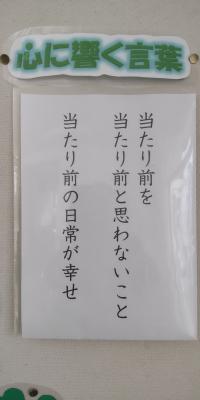 心に響く言葉
当たり前を
当たり前と思わないこと
当たり前の日常が幸せ